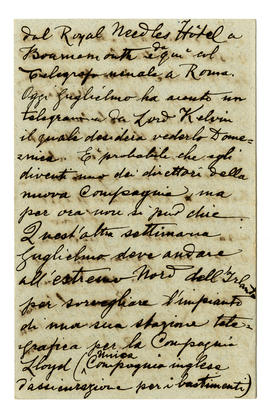 dal Royal Needles Hôtel a
Bournemouth e di qui col
Telegrafo usuale a Roma.
Oggi Guglielmo ha avuto un
telegramma da Lord Kelvin
il quale desidera vederlo Dome-
nica. È probabile che egli
diventi uno dei direttori della
nuova Compagnia, ma
per ora non si può dire.
Quest'altra settimana
Guglielmo deve andare
all'estremo Nord dell'Irlanda
per sorvegliare l'impianto
di una sua stazione tele-
grafica per la Compagnia
Lloyd (unica Compagnia inglese
d'assicurazione per i bastimenti)